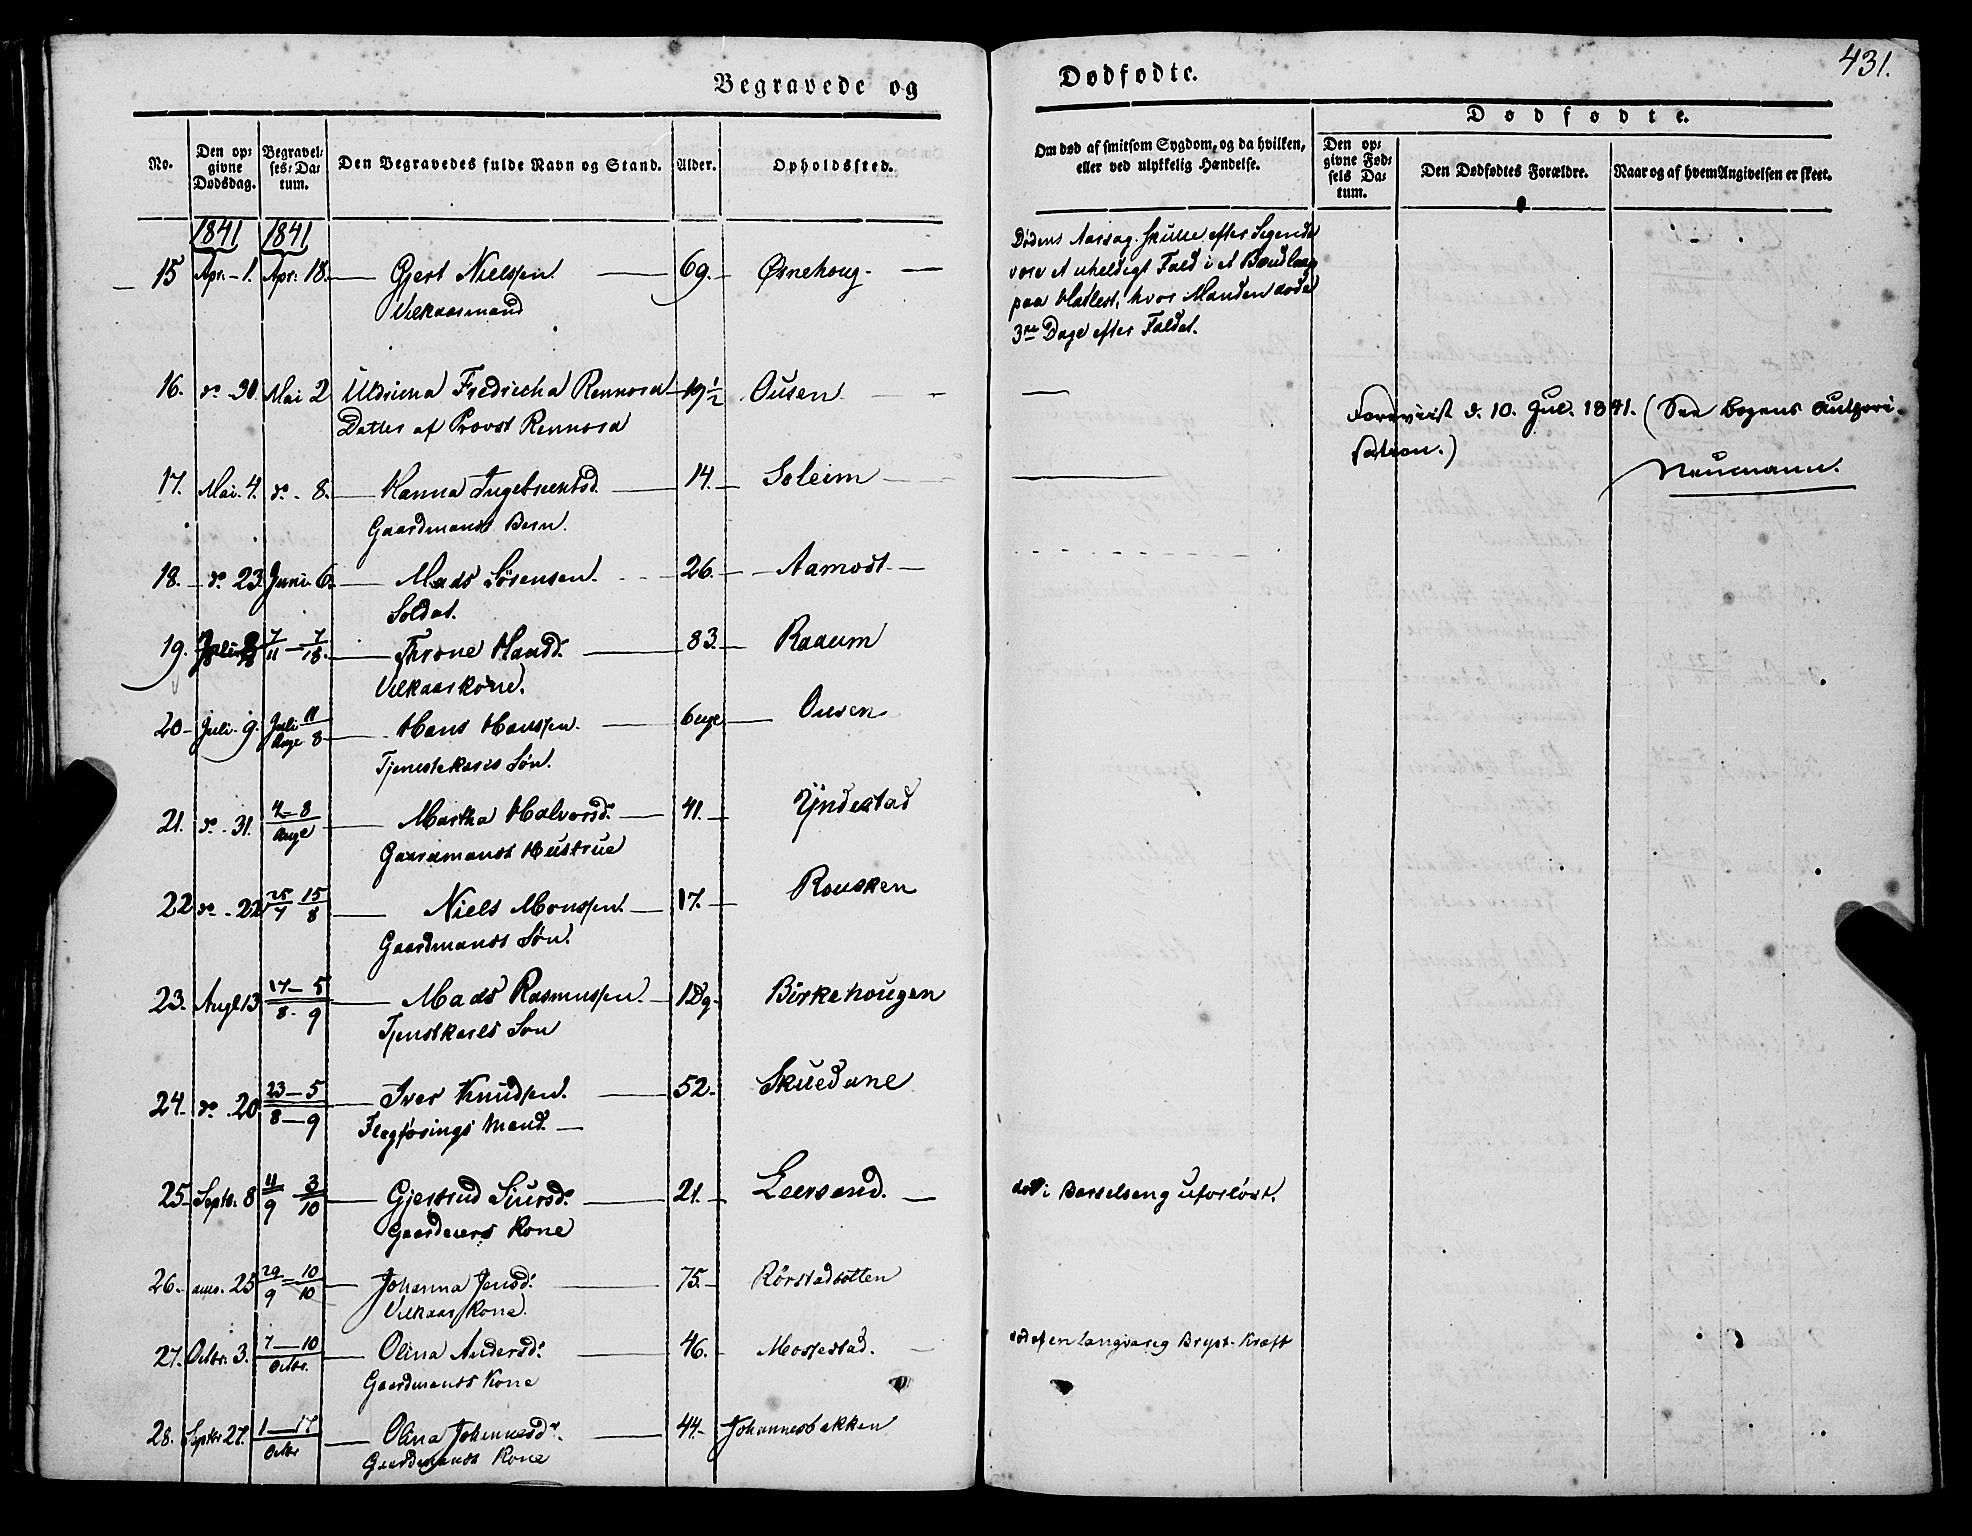 431.
Begravede og Dødfødte.
No.
Den opgivne Dødsdag.
Begravelses-Datum.
Den Begravedes fulde Navn og Stand.
Alder.
Opholdssted.
Om død af smitsom Sygdom, og da hvilken, eller ved ulykkelig Hændelse.
Dødfødte.
Den opgivne Fødsels Datum.
Den Dødfødtes Forældre.
Naar og af hvem Angivelsen er skeet.
1841 1841
15 Apr. 1. Apr: 18. Gjert Nielssen 69. Ørnehoug
Vilkaarmand
Dødens Aarsag skulle efter Sigende
være et uheldigt Fald i et
paa Hatlest, hvor Manden døde
3re Dage efter Faldet.
16. do 30. Mai 2 Uldricha Fredricha Rennord 19 1/2 Ousen
Datter af Provst Rennord
Forevüst d. 10. Jul. 1841. (See Bogens Autori-
sation.)
Neumann.
17. Mai. 4. do 8. Hanna Ingebrectsd. 14. Soleim
Gaardmands Barn.
18. do 23. Juni 6. Mads Sørensen. 26. Aamodt
Soldat.
19. Juli 8 7/11 7/18. Throne Hansd. 83. Raaum
Vilkaarkone.
20 Juli 9. Juli 11 Aug 8 Hans Hanssen. 6 uge Ousen
Tjenestekarls Søn.
21. do 31. 4-8 Aug Martha Halvorsd. 41. Yndestad
Gaardmands Hustrue
22 do 22 25/7 15/8 Niels Monssen. 17. Rousken
Gaardmands Søn.
23. Aug 13 17-5 8. 9 Mads Rasmussen. 1 Dg. Birkehougen
Tjenstkarls Søn
24. do 20. 23-5 8-9 Iver Knudsen. 52. Skuedane
Flegførings Mand.
25. Septbr. 8 11/9 3/10 Gjertrud Siursd. 21. Leersund.
Gaardeiers Kone
død i Barselseng uforløst.
26. 25 29/9 10/10 Johanna Jensd: 75. Rørstadbotten
Vilkaars Kone.
27. Octbr. 3. 7-10 Octbr. Olina Andersd: 46. Mossestad.
Gaardmands Kone
død af en langvarig Bryst-Kræft
28. Septbr 27. 1-17 Octbr Olina Johannesd. 44. Johannesbakken
Gaardmands Kone